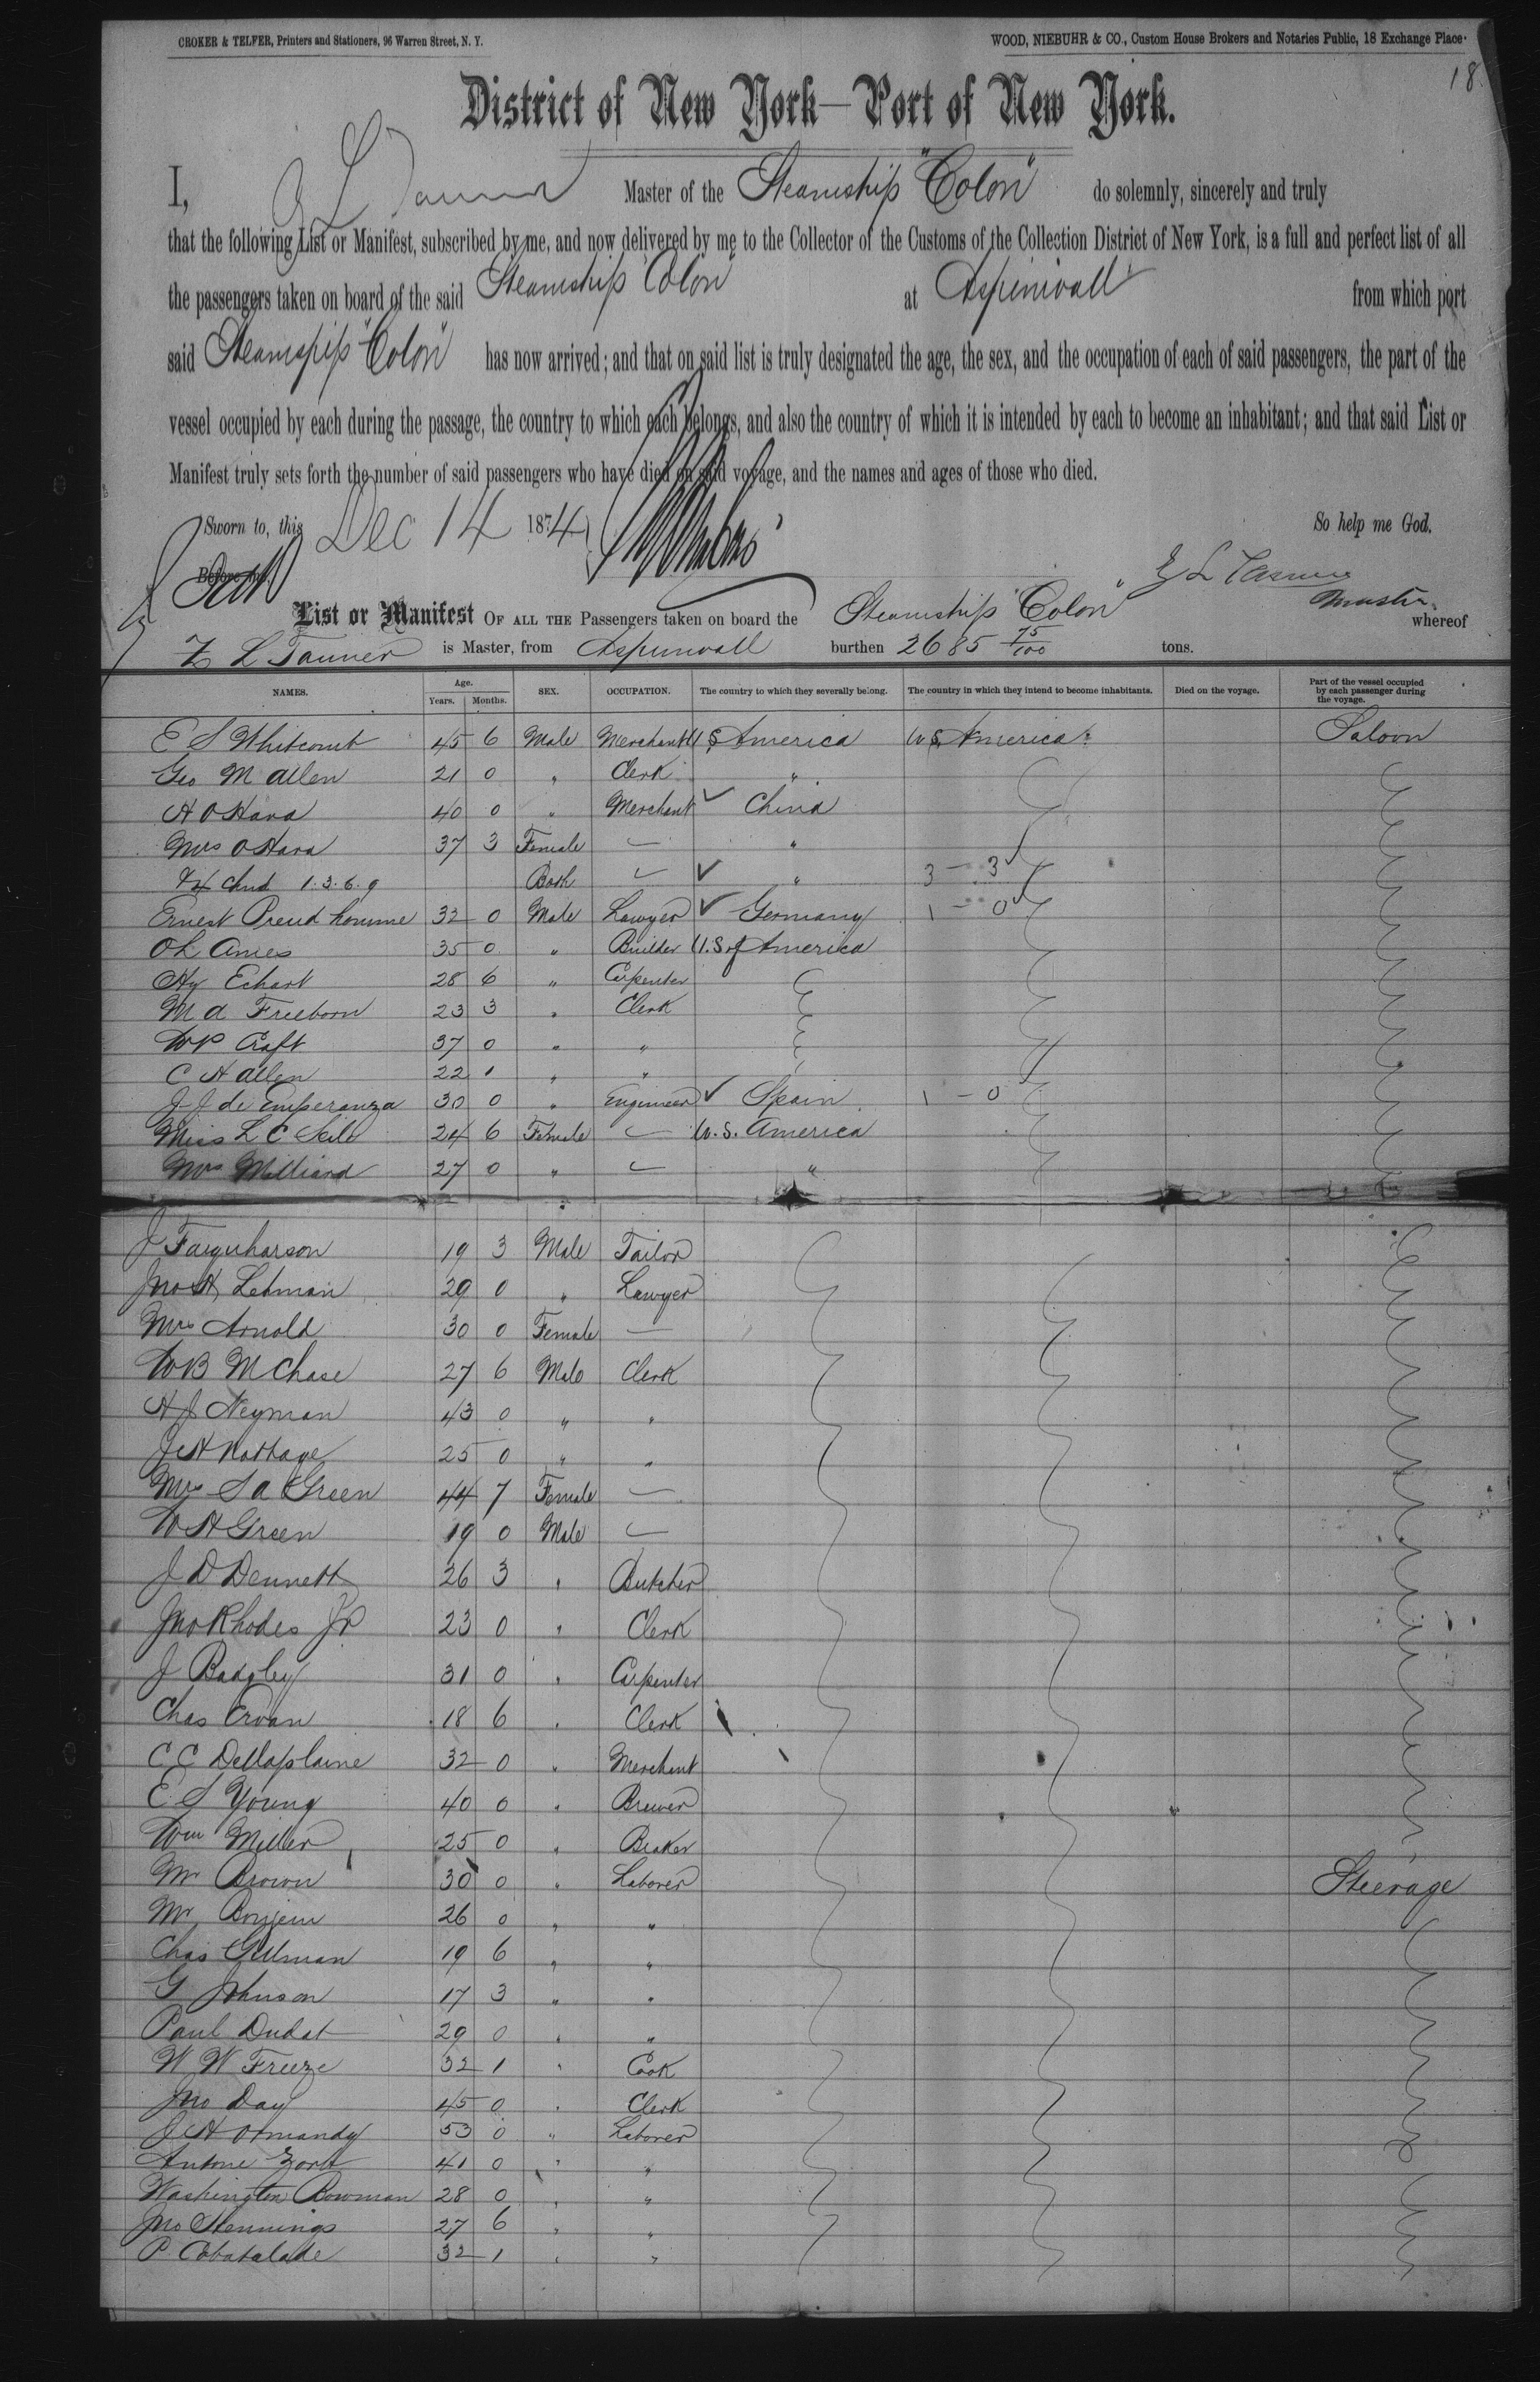 CROKER & TELFER, Printers and Stationers, 96 Warren Street, N. Y.
WOOD, NIEBUHR & CO., Custom House Brokers and Notaries Public, 18 Exchange Place.
18
District of New York—Port of New York.
I, Z L Tanner Master of the Steamship "Colon" do solemnly, sincerely and truly
that the following List or Manifest, subscribed by me, and now delivered by me to the Collector of the Customs of the Collection District of New York, is a full and perfect list of all
the passengers taken on board of the said Steamship Colon at Aspinwall from which port
said Steamship "Colon" has now arrived; and that on said list is truly designated the age, the sex, and the occupation of each of said passengers, the part of the
vessel occupied by each during the passage, the country to which each belongs, and also the country of which it is intended by each to become an inhabitant; and that said List or
Manifest truly sets forth the number of said passengers who have died on said voyage, and the names and ages of those who died.
Sworn to, this Dec 14 1874 So help me God.
Before me,
Z L Tanner
Master
List or Manifest OF ALL THE Passengers taken on board the Steamship "Colon" whereof
Z L Tanner is Master, from Aspinwall burthen 2685 75/100 tons.
NAMES. Age. Years. Months. SEX. OCCUPATION. The country to which they severally belong. The country in which they intend to become inhabitants. Died on the voyage. Part of the vessel occupied by each passenger during the voyage.
E S Whitcomb 45 6 Male Merchant U S America U S America Saloon
Geo M Allen 21 0 " Clerk "
H O Hara 40 0 " Merchant ✓ China
Mrs O Hara 37 3 Female — "
4 Chd 1. 3. 6. 9 Both — ✓ " 3 - 3 ✓
Ernest Preud homme 32 0 Male Lawyer ✓ Germany 1 - 0 ✓
O L Ames 35 0 " Builder U.S of America
Hy Echart 28 6 " Carpenter
M A Freeborn 23 3 " Clerk
W P Craft 37 0 " "
C H Allen 22 1 " "
J J de Emperanza 30 0 " Engineer ✓ Spain 1 - 0
Miss L C 24 6 Female — U.S. America
Mrs Milliard 27 0 " — "
J Farquharson 19 3 Male Tailor
Jno H Lehman 29 0 " Lawyer
Mrs Arnold 30 0 Female —
W B M Chase 27 6 Male Clerk
H J Neyman 43 0 " "
J H Nottage 25 0 " "
Mrs S A Green 44 7 Female —
W H Green 19 0 Male —
J D Dennett 26 3 " Butcher
Jno Rhodes Jr 23 0 " Clerk
J Badgley 31 0 " Carpenter
Chas Ervan 18 6 " Clerk
C C Dellaplaine 32 0 " Merchant
E S Young 40 0 " Brewer
Wm Miller 25 0 " Beaker
Mr Brown 30 0 " Laborer Steerage
Mr 26 0 " "
Chas Gillman 19 6 " "
G Johnson 17 3 " "
Paul Dudat 29 0 " "
W W Freeze 32 1 " Cook
Jno Day 45 0 " Clerk
J H Ormandy 53 0 " Laborer
Antone Zorb 41 0 " "
Washington Bowman 28 0 " "
Jno Hennings 27 6 " "
P Cobatalade 32 1 " "